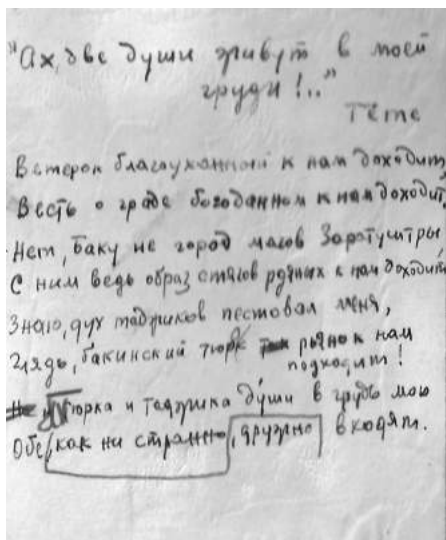 "Ах, две души живут в моей
груди!.."
Гёте
Ветерок благоуханный к нам доходит,
Весть о граде богоданном к нам доходит,
Нет, Баку не город магов Заратуштры
С ним ведь образ стягов рдяных к нам доходит
Знаю, дух таджиков пестовал меня,
Глядь, бакинский тюрк рьяно к нам
подходит!
тюрка и таджика души в грудь мою
Обе, как ни странно, дружно входят.